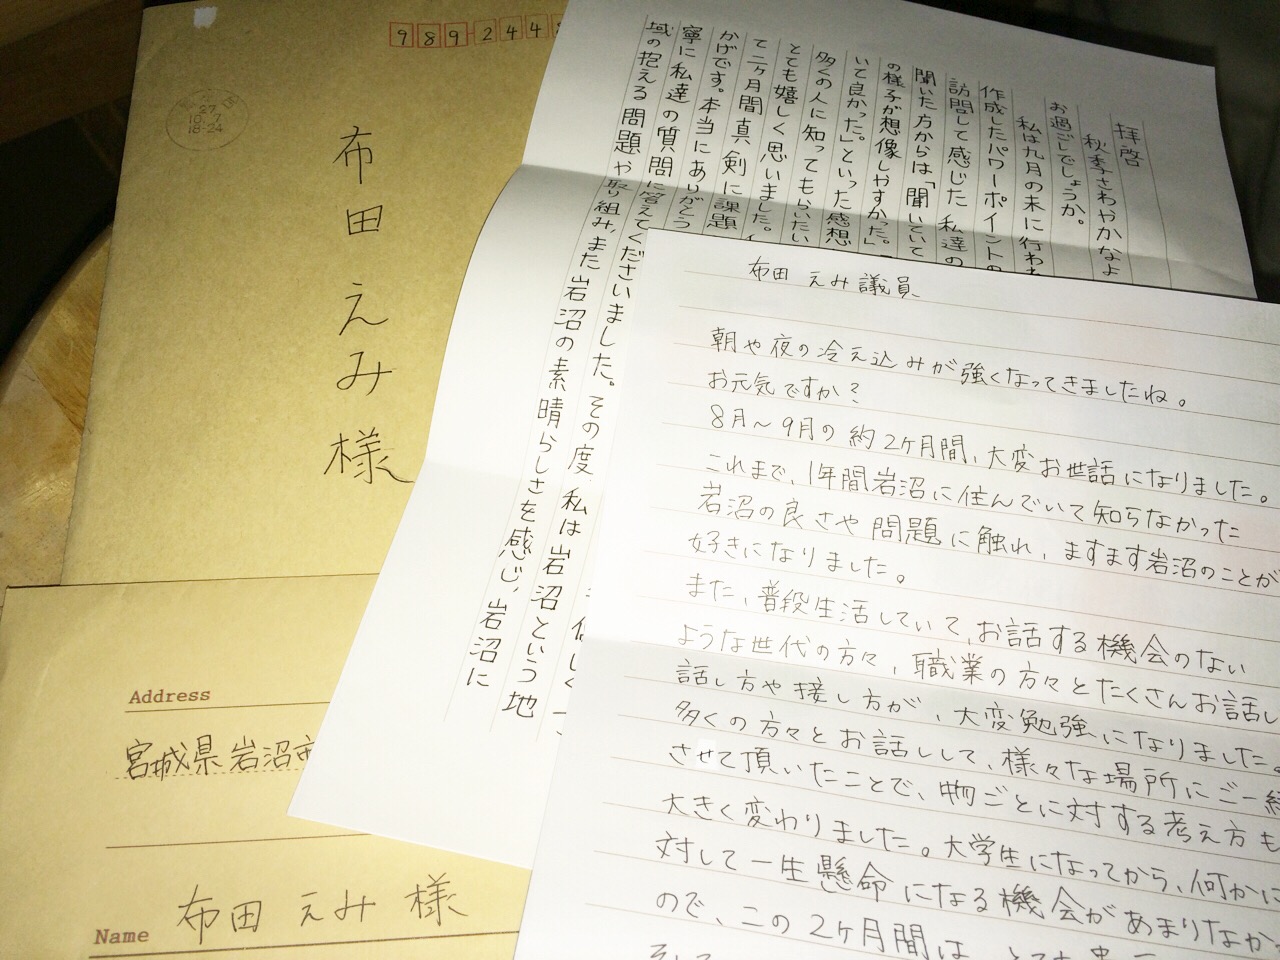 989-2448
27
10.7
18-24
布田えみ様
拝啓
秋季さわやかなよ
お過ごしでしょうか。
私は九月の末に行われ
作成したパワーポイントの
訪問して感じた私達の
聞いた方からは「聞いていて
の様子が想像しやすかった。」
いて良かった。」といった感想
多くの人に知ってもらいたい
とても嬉しく思いました。
て二ヶ月間真剣に課題
かげです。本当にありがとう
寧に私達の質問に答えてくださいました。その度、私は岩沼という地
域の抱える問題や取り組み、また岩沼の素晴らしさを感じ、岩沼に
布田 えみ議員
朝や夜の冷え込みが強くなってきましたね。
お元気ですか?
8月〜9月の約2ヶ月間、大変お世話になりました。
これまで、1年間岩沼に住んでいて知らなかった
岩沼の良さや問題に触れ、ますます岩沼のことが
好きになりました。
また、普段生活していて、お話する機会のない
ような世代の方々、職業の方々とたくさんお話し
話し方や接し方が、大変勉強になりました。
多くの方々とお話しして、様々な場所にご一緒
させて頂いたことで、物ごとに対する考え方も
大きく変わりました。大学生になってから、何かに
対して一生懸命になる機会があまりなかっ
ので、この2ヶ月間は、とても
そして
Address
宮城県岩沼市
Name 布田 えみ 様